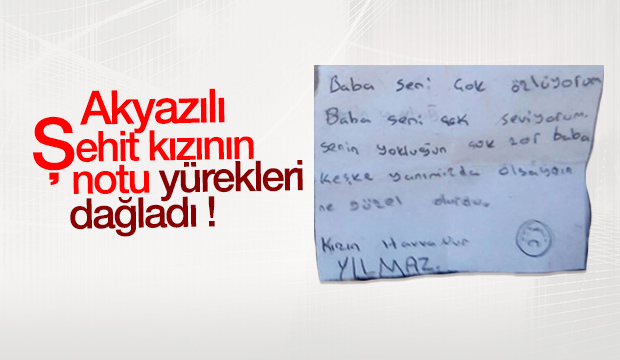 Akyazılı
Şehit kızının
notu yürekleri
dağladı !
Baba seni çok özlüyorum
Baba seni çok seviyorum.
senin yokluğun çok zor baba
keşke yanımızda olsaydın
ne güzel olurdu.
Kızın Havva Nur
YILMAZ.